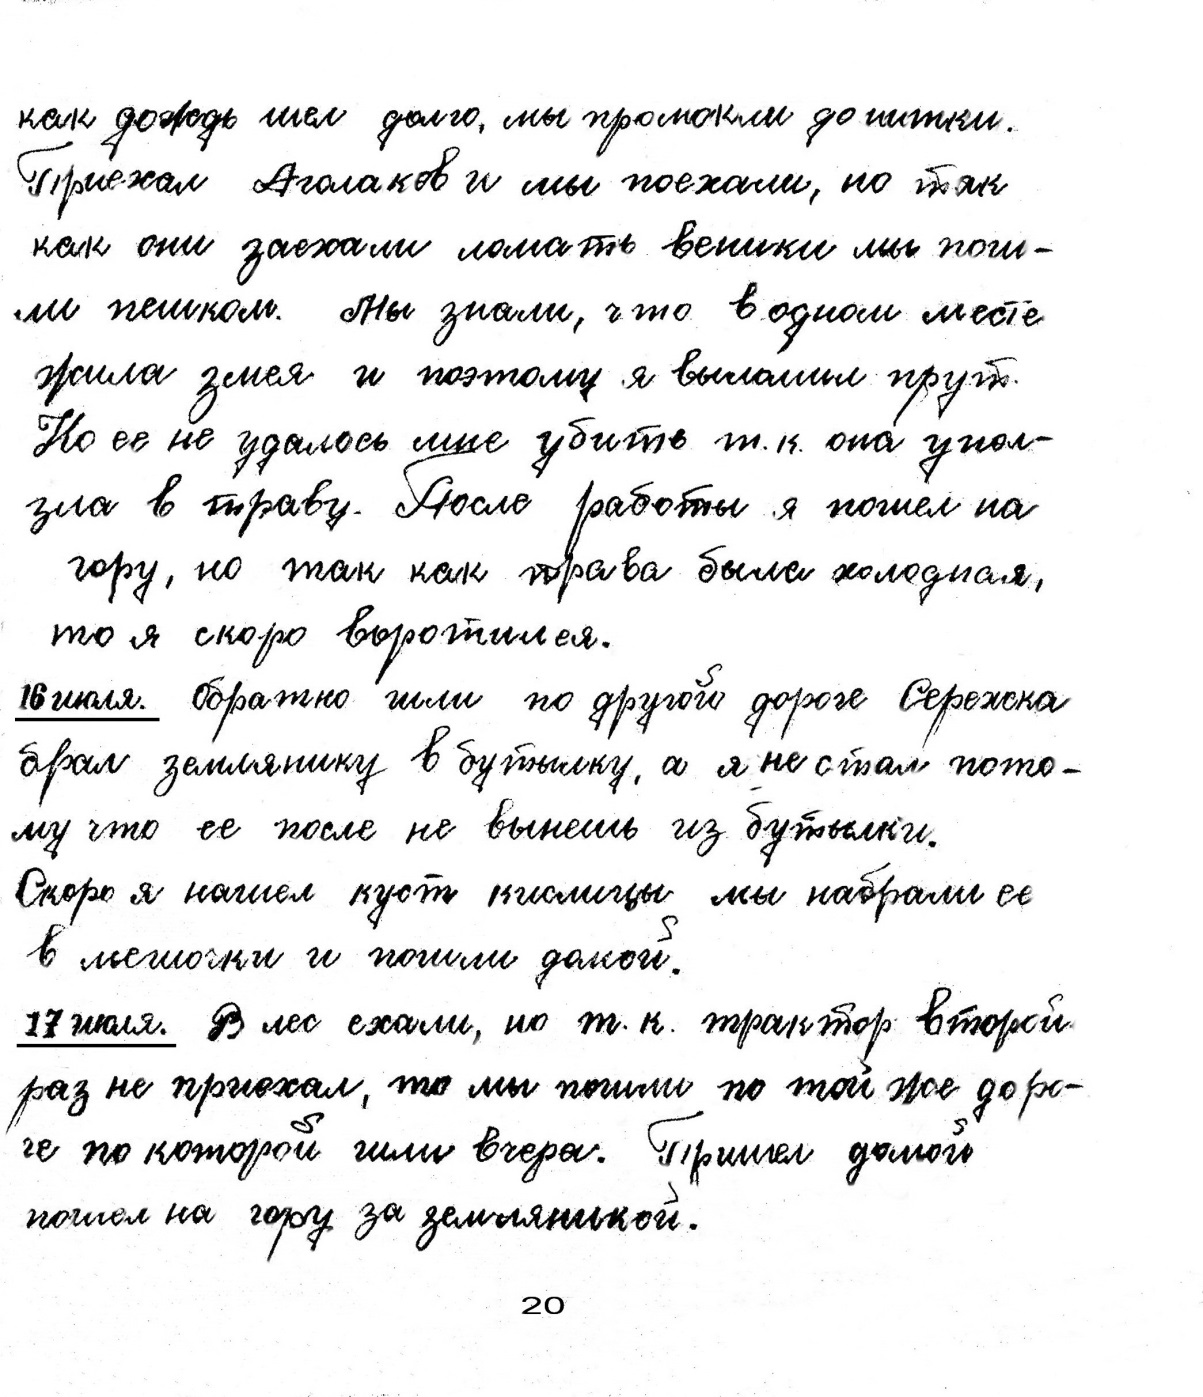 как дождь шел долго, мы промокли до нитки.
Приехал Аголаков и мы поехали, но так
как они заехали ломать веники мы пош-
ли пешком. Мы знали, что в одном месте
жила змея и поэтому я выломил прут.
Но ее не удалось мне убить т.к. она упол-
зла в траву. После работы я пошел на
гору, но так как трава была холодная,
то я скоро выротился.
16 июля. Обратно шли по другой дороге Сережка
брал землянику в бутылку, а я не стал пото-
му что ее после не вынешь из бутылки.
Скоро я нашел куст кислицы мы набрали ее
в мешочки и пошли домой.
17 июля. В лес ехали, но т.к. трактор второй
раз не приехал, то мы пошли по той же доро-
ге по которой шли вчера. Пришел домой
пошел на гору за земляникой.
20